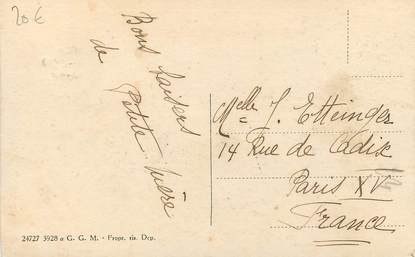 20€
Bons baisers
de Petite Mère
Melle J. Etteinger
14 Rue de Cadix
Paris XV
France
24727 3928 a G. G. M. - Propr. ris. Dep.